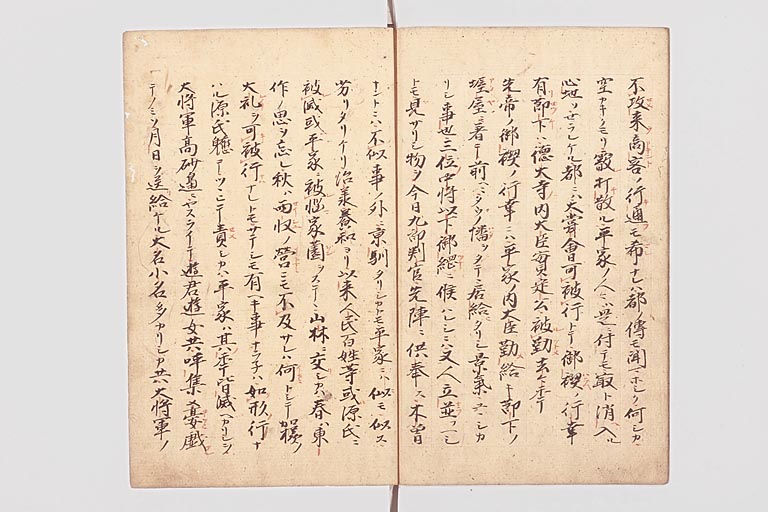 不攻来商客ノ行通モ希ナレハ都ノ傳モ聞マホシク何シカ
空カキクモリ霰打散ル平家ノ人ニハ付テモ最ト消入ル
心地ソセラレケル都ニハ大甞會可被行トテ御禊ノ行幸
有節下ハ徳大寺内大臣實定公被勤去々年
先帝ノ御禊ノ行幸ニハ平家内大臣勤給キ節下ノ
幄屋ニ著テ前ニ タツノ幡ヲタテヽ居給タリシ景氣
リシ事也三位中将以下御綱ニ候ハレシニハ又人立並フヘシ
トモ見サリシ物ヲ今日九郎判官先陣ニ供奉ス木曽
ナントニハ不似事ノ外ニ京馴タリシカトモ平家ニハ似モ似ス
劣リタリケリ治美養和ヨリ以来人民百姓等或源氏ニ
被滅或平家ニ被悩家園ヲステヽ山林ニ交シカハ春ハ東
作ノ思ヲ忘レ秋ハ西収ノ營ニモ不及サレハ何トシテ加様ノ
大礼ヲ可被行ナレトモサテシモ有ヘキ事ナラネハ如形行ナ
ハル源氏 ツヽニテ責シカハ平家ハ其年皆滅ヘカリシヲ
大将軍高砂邊ニヤスラヰテ遊君遊女共呼集メ 戯
テノミソ月日ヲ送給ケル大名小名多カリシカ共大将軍ノ